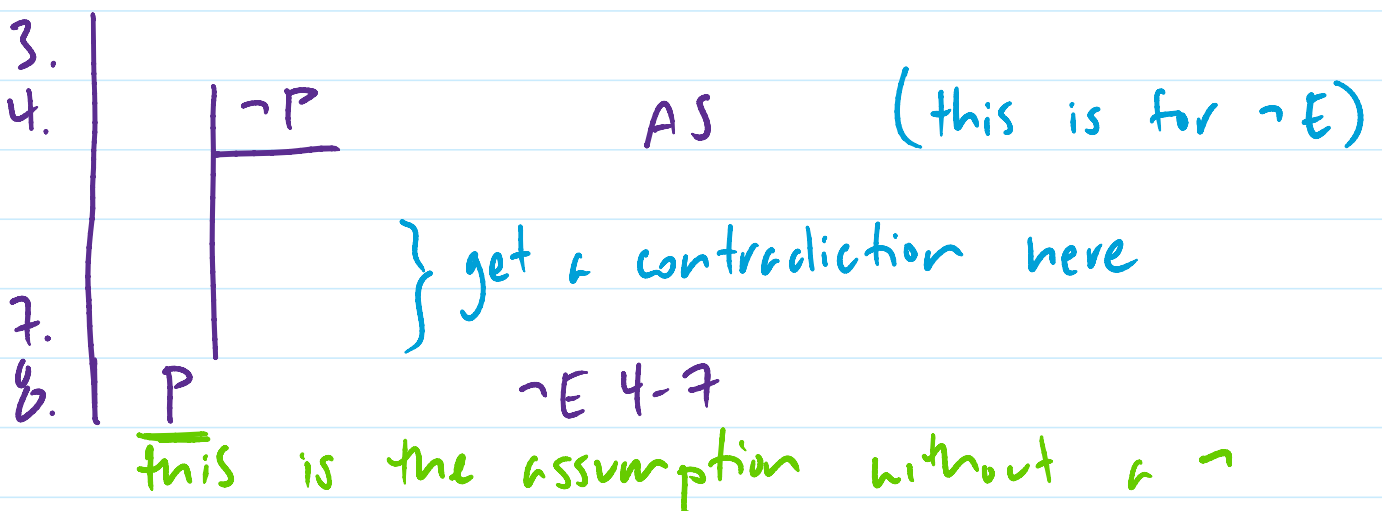 3.
4. ¬P AS (this is for ¬E)
} get a contradiction here
7.
8. P ¬E 4-7
this is the assumption without a ¬